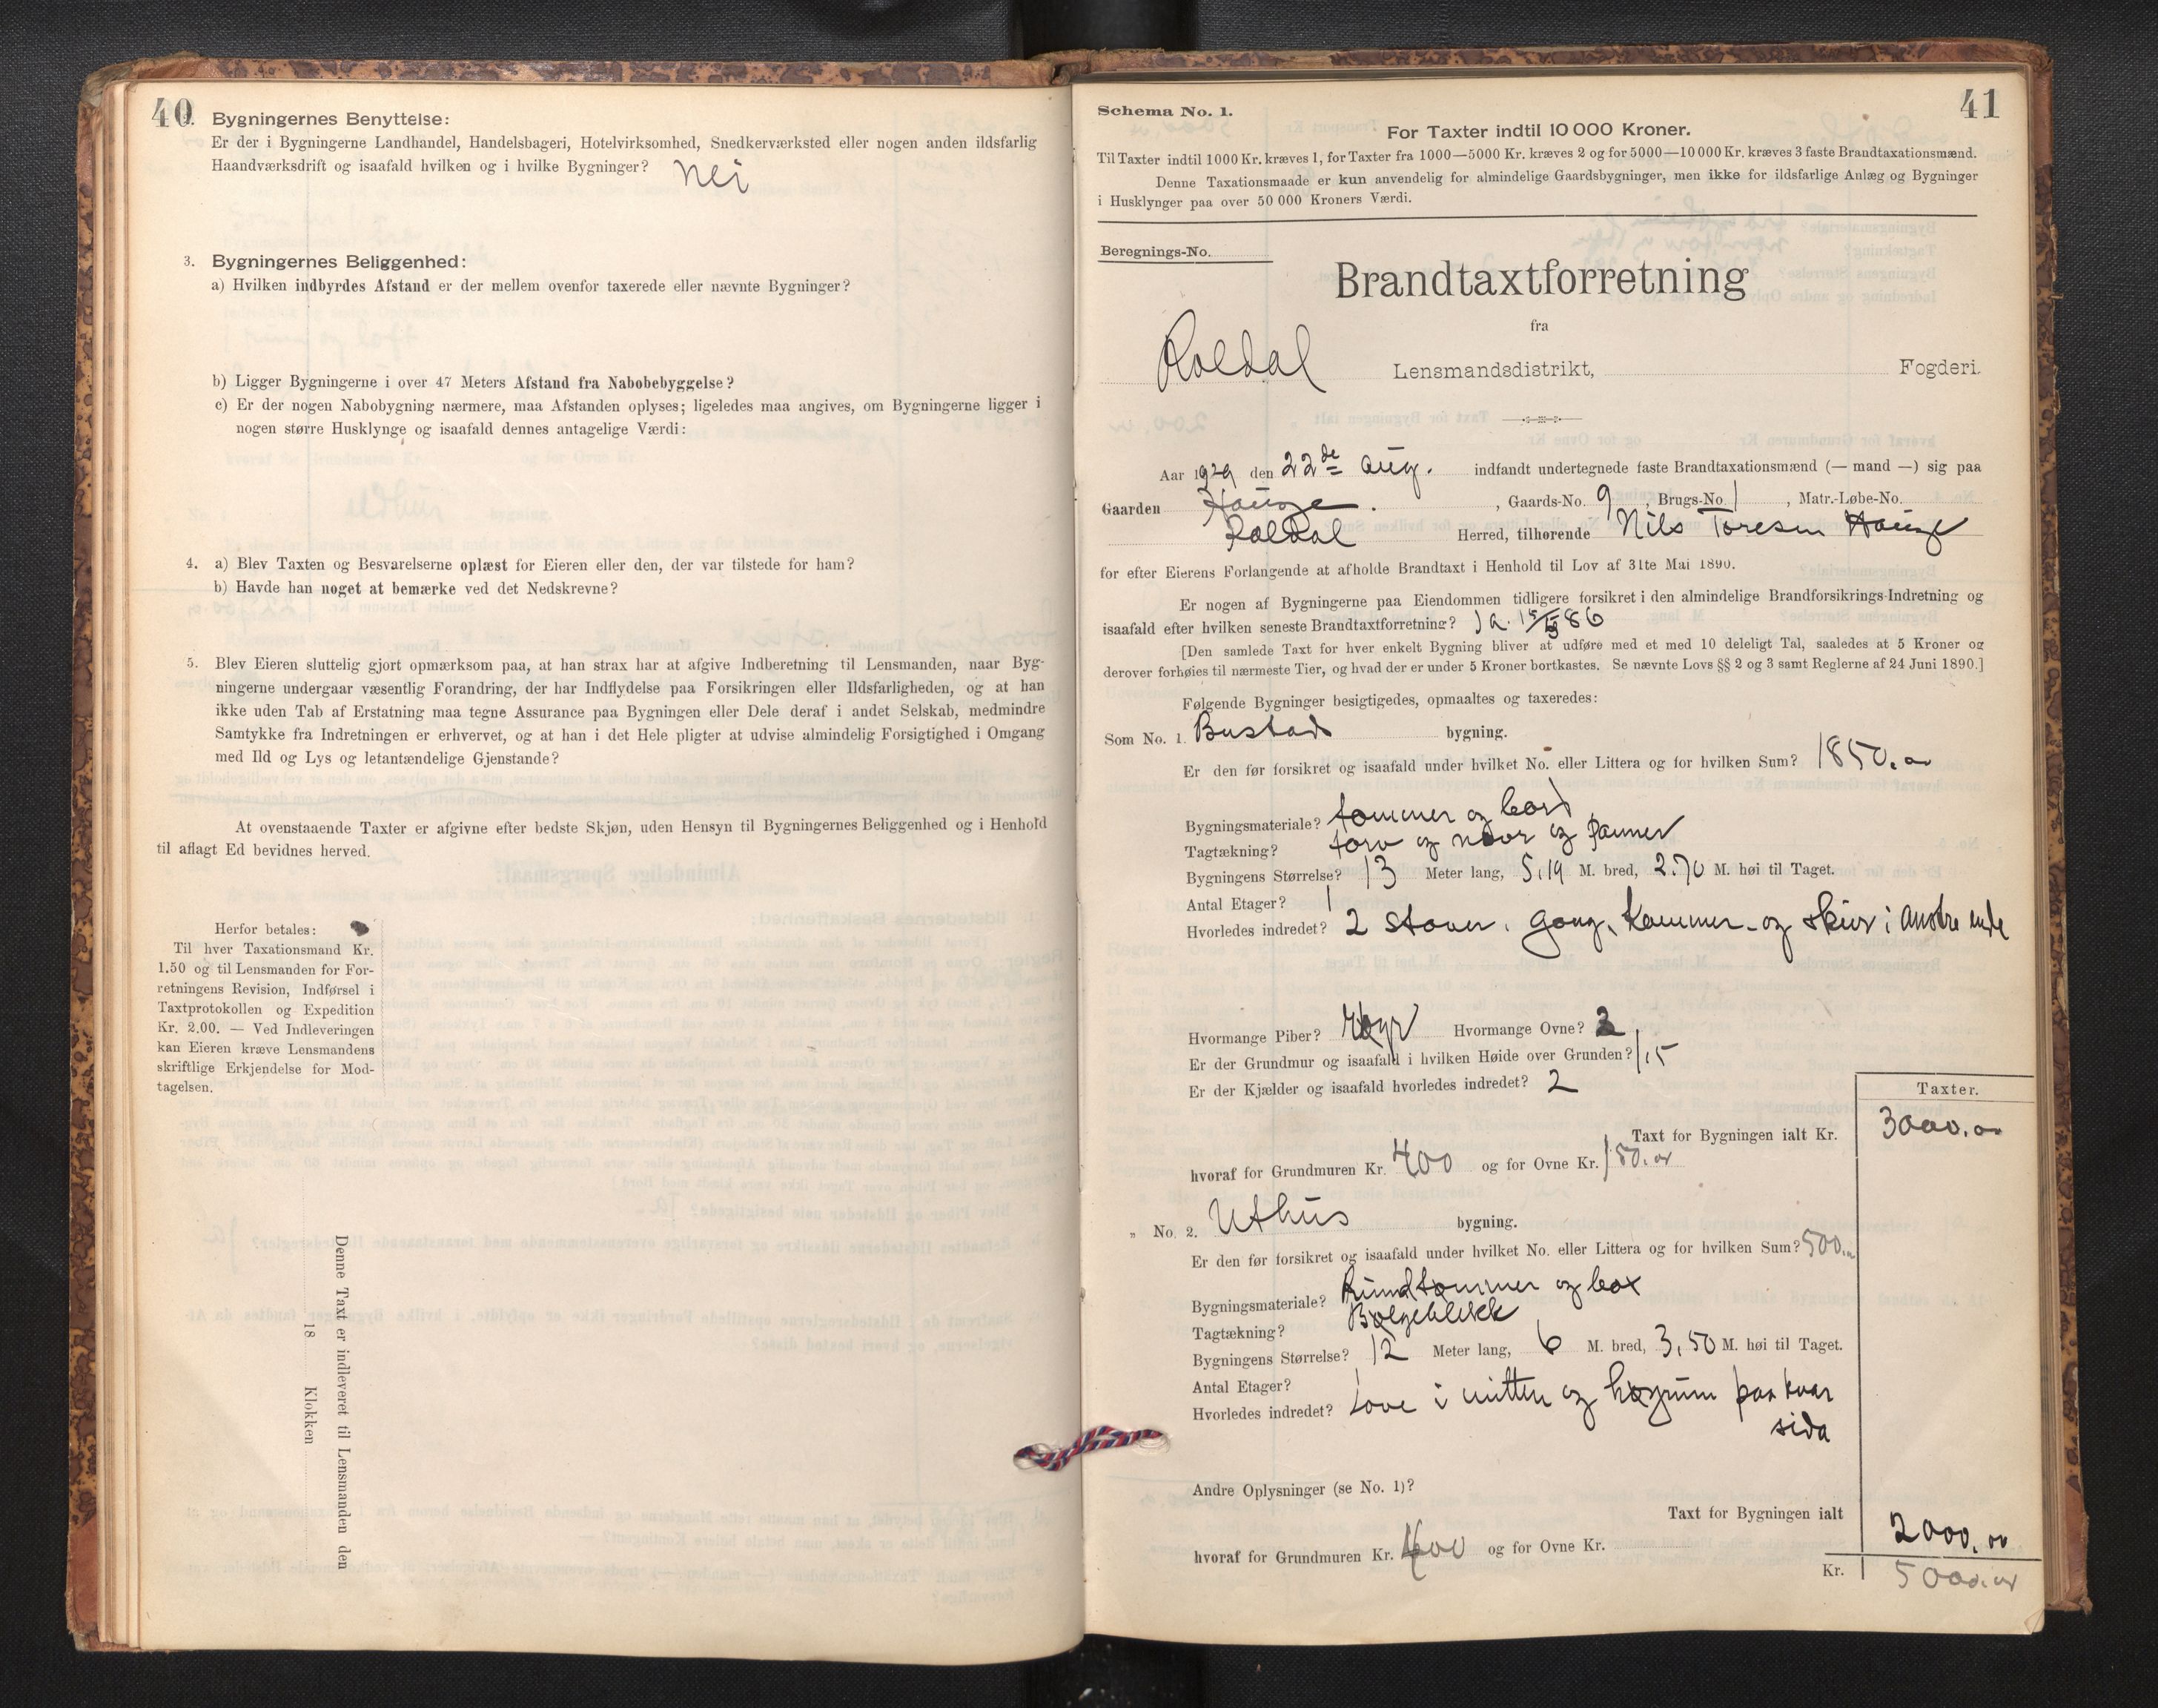 40
2. Bygningernes Benyttelse:
Er der i Bygningerne Landhandel, Handelsbageri, Hotelvirksomhed, Snedkerværksted eller nogen anden ildsfarlig
Haandværksdrift og isaafald hvilken og i hvilke Bygninger? Nei
3. Bygningernes Beliggenhed:
a) Hvilken indbyrdes Afstand er der mellem ovenfor taxerede eller nævnte Bygninger?
b) Ligger Bygningerne i over 47 Meters Afstand fra Nabobebyggelse?
c) Er der nogen Nabobygning nærmere, maa Afstanden oplyses; ligeledes maa angives, om Bygningerne ligger i
nogen større Husklynge og isaafald dennes antagelige Værdi:
4. a) Blev Taxten og Besvarelserne oplæst for Eieren eller den, der var tilstede for ham?
b) Havde han noget at bemærke ved det Nedskrevne?
5. Blev Eieren sluttelig gjort opmærksom paa, at han strax har at afgive Indberetning til Lensmanden, naar Byg-
ningerne undergaar væsentlig Forandring, der har Indflydelse paa Forsikringen eller Ildsfarligheden, og at han
ikke uden Tab af Erstatning maa tegne Assurance paa Bygningen eller Dele deraf i andet Selskab, medmindre
Samtykke fra Indretningen er erhvervet, og at han i det Hele pligter at udvise almindelig Forsigtighed i Omgang
med Ild og Lys og letantændelige Gjenstande?
At ovenstaaende Taxter er afgivne efter bedste Skjøn, uden Hensyn til Bygningernes Beliggenhed og i Henhold
til aflagt Ed bevidnes herved.
Herfor betales:
Til hver Taxationsmand Kr.
1.50 og til Lensmanden for For-
retningens Revision, Indførsel i
Taxtprotokollen og Expedition
Kr. 2.00. — Ved Indleveringen
kan Eieren kræve Lensmandens
skriftlige Erkjendelse for Mod-
tagelsen.
Denne Taxt er indleveret til Lensmanden den
18 Klokken
41
Schema No. 1.
For Taxter indtil 10 000 Kroner.
Til Taxter indtil 1000 Kr. kræves 1, for Taxter fra 1000—5000 Kr. kræves 2 og for 5000—10 000 Kr. kræves 3 faste Brandtaxationsmænd.
Denne Taxationsmaade er kun anvendelig for almindelige Gaardsbygninger, men ikke for ildsfarlige Anlæg og Bygninger
i Husklynger paa over 50 000 Kroners Værdi.
Beregnings-No.
Brandtaxtforretning
fra
Roldal Lensmandsdistrikt, Fogderi.
Aar 1929 den 22de Aug. indfandt undertegnede faste Brandtaxationsmænd (— mand —) sig paa
Gaarden Hauge, Gaards-No. 9, Brugs-No. 1, Matr.-Løbe-No.
Roldal Herred, tilhørende Nils Toresen Hauge
for efter Eierens Forlangende at afholde Brandtaxt i Henhold til Lov af 31te Mai 1890.
Er nogen af Bygningerne paa Eiendommen tidligere forsikret i den almindelige Brandforsikrings-Indretning og
isaafald efter hvilken seneste Brandtaxtforretning? Ja. 86
[Den samlede Taxt for hver enkelt Bygning bliver at udføre med et med 10 deleligt Tal, saaledes at 5 Kroner og
derover forhøies til nærmeste Tier, og hvad der er under 5 Kroner bortkastes. Se nævnte Lovs §§ 2 og 3 samt Reglerne af 24 Juni 1890.]
Følgende Bygninger besigtigedes, opmaaltes og taxeredes:
Som No. 1. Bustads bygning.
Er den før forsikret og isaafald under hvilket No. eller Littera og for hvilken Sum? 1850.00
Bygningsmateriale? tømmer og bord
Tagtækning? torv og nævr og panner
Bygningens Størrelse? 13 Meter lang, 5,19 M. bred, 2.70 M. høi til Taget.
Antal Etager? 1
Hvorledes indredet? 2 stover, gang, kammer og skur i andre ende
Hvormange Piber? Hvormange Ovne? 2
Er der Grundmur og isaafald i hvilken Høide over Grunden? 1,5
Er der Kjælder og isaafald hvorledes indredet? 2
Taxter.
Taxt for Bygningen ialt Kr. 3000.00
hvoraf for Grundmuren Kr. 400 og for Ovne Kr. 150.00
„ No. 2. Uthus bygning.
Er den før forsikret og isaafald under hvilket No. eller Littera og for hvilken Sum? 500.00
Bygningsmateriale? Rundtømmer og box
Tagtækning? Bølgeblekk
Bygningens Størrelse? 12 Meter lang, 6 M. bred, 3,50 M. høi til Taget.
Antal Etager? 1
Hvorledes indredet? Love i mitten og høyrum paa kvar
sida
Andre Oplysninger (se No. 1)?
Taxt for Bygningen ialt 2000.00
hvoraf for Grundmuren Kr. 400 og for Ovne Kr.
Kr. 5000.00